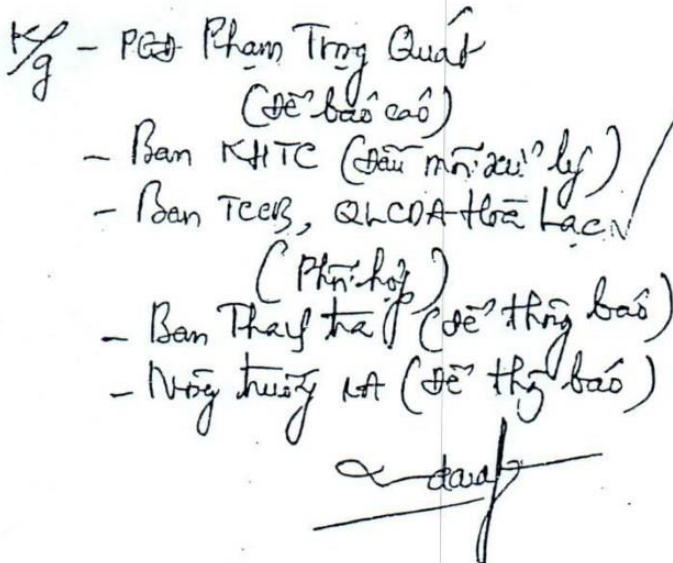 K/g - PGĐ Phạm Trọng Quát
(để báo cáo)
- Ban KHTC (đầu mối xử lý)
- Ban TCCB, QLCDA Hoà Lạc
(Phối hợp)
- Ban Thanh tra (để thông báo)
- Nông trường 1A (để thg báo)